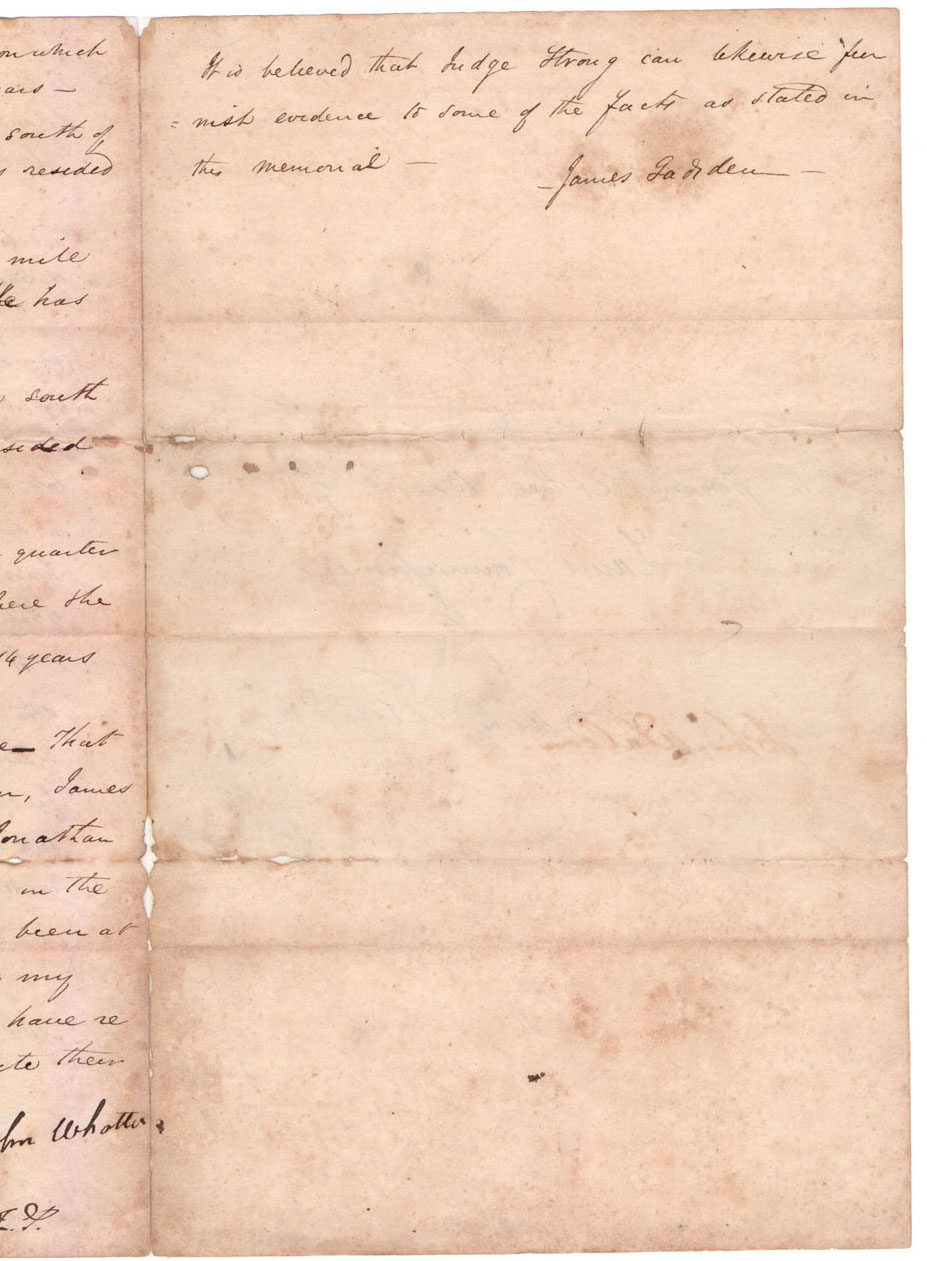 on which
ars —
south of
resided
mile
He has
south
sided
quarter
here she
14 years
That
James
Jonathan
on the
been at
my
have re
their
John Whotten
It is believed that Judge Strong can likewise fur
= nish evidence to some of the facts as stated in
this memorial —
— James Gadsden —